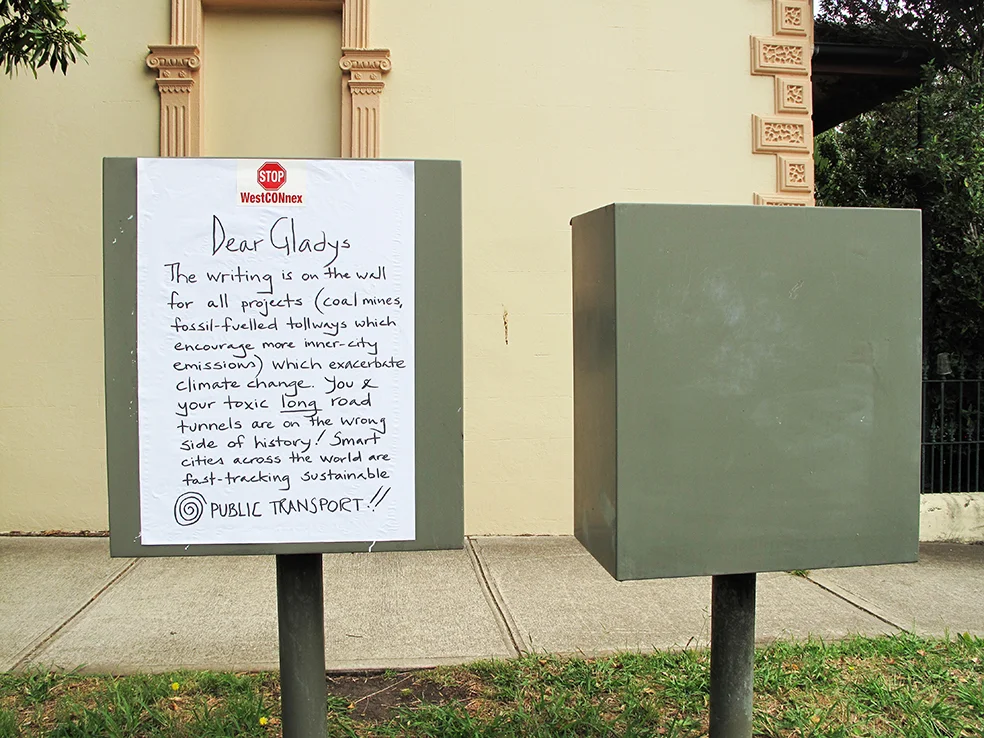 STOP
WestCONnex
Dear Gladys
The writing is on the wall
for all projects (coal mines,
fossil-fuelled tollways which
encourage more inner-city
emissions) which exacerbate
climate change. You &
your toxic long road
tunnels are on the wrong
side of history! Smart
cities across the world are
fast-tracking sustainable
PUBLIC TRANSPORT!!